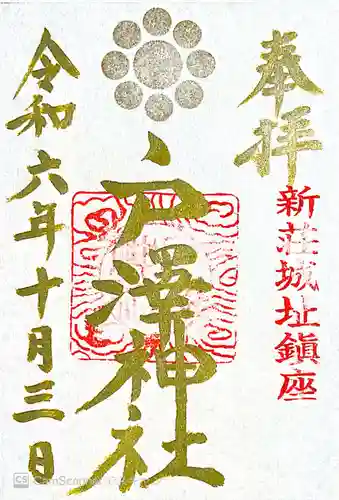 奉拝
新荘城址鎮座
戸澤神社
令和六年十月三日
CS CamScanner